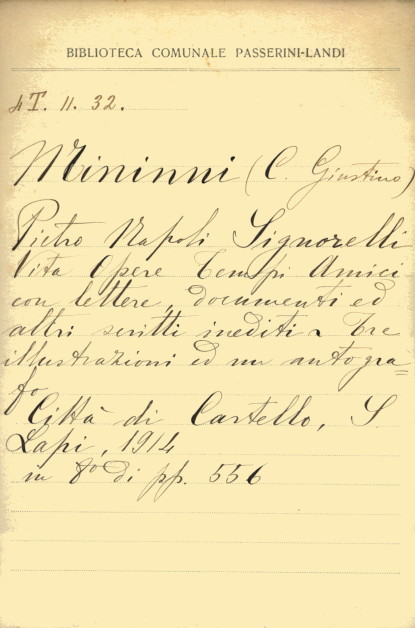 BIBLIOTECA COMUNALE PASSERINI-LANDI
4T. 11. 32.
Mininni (C. Giustino)
Pietro Napoli Signorelli
Vita Opere Tempi Amici
con lettere, documenti ed
altri scritti inediti tre
illustrazioni ed un autogra=
fo
Città di Castello, S.
Lapi, 1914
in 8° di pp. 556